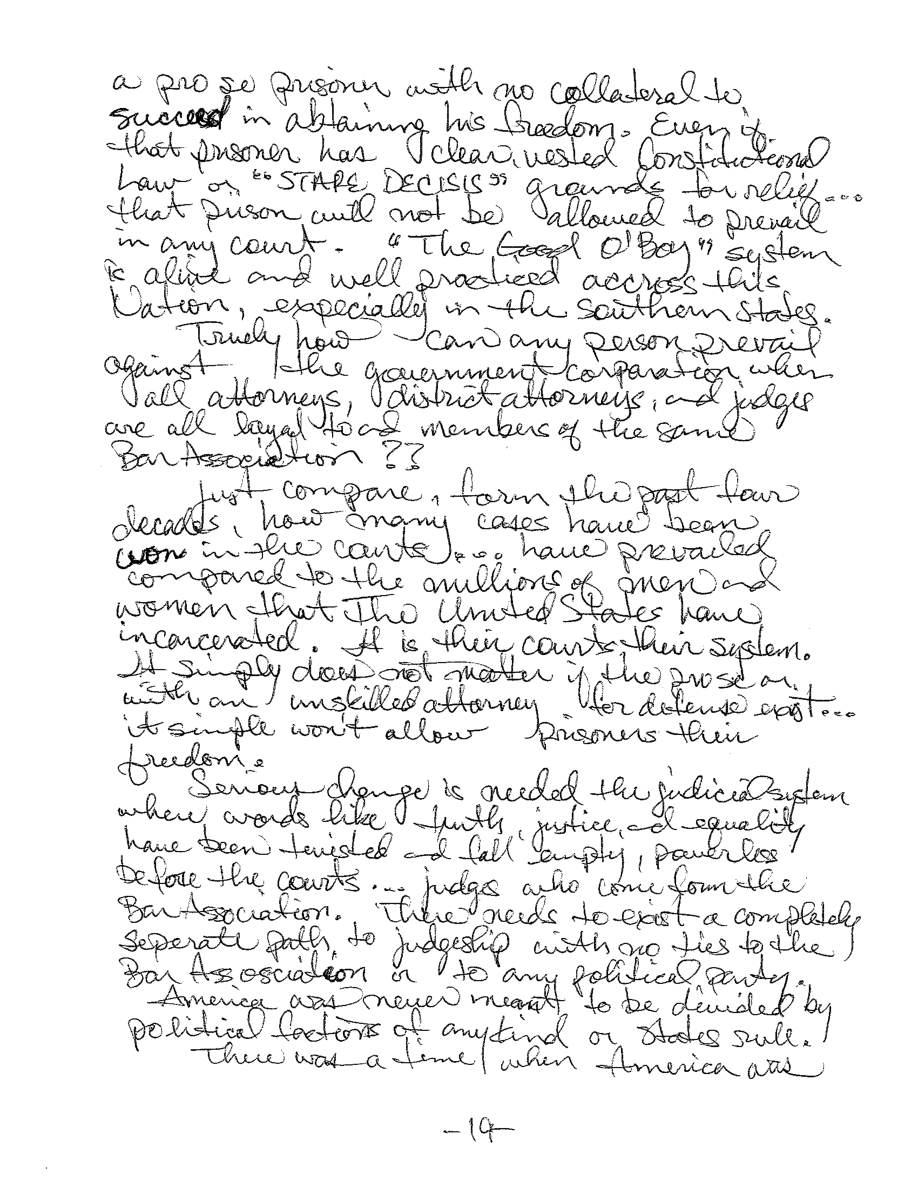 a pro se prisoner with no collateral to
succeed in abtaining his freedom. Even if
that prisoner has clear, vested Constitutional
Law or "STARE DECISIS" grounds for relief...
that prison will not be allowed to prevail
in any court. "The Good O'Boy" system
is alive and well practiced accross this
Nation, expecially in the Southern States.
Truely how can any person prevail
against the government corporation when
all attorneys, district attorneys, and judges
are all loyal to ad members of the same
Bar Association??
Just compare, form the past four
decades, how many cases have been
won in the courts... have prevailed
compared to the millions of men and
women that The United States have
incarcerated. It is their courts, their system.
It simply does not matter if the prose or
with an unskilled attorney for defense exist...
it simple won't allow prisoners their
freedom.
Serious change is needed the judicial system
where words like truth, justice, ad equality
have been twisted ad fall empty, powerless
before the courts... judges who come form the
Bar Association. There needs to exist a completely
seperate path to judgeship with no ties to the
Bar Association or to any political party.
America was never meant to be divided by
political factions of any kind or States rule.
There was a time when America was
-19-